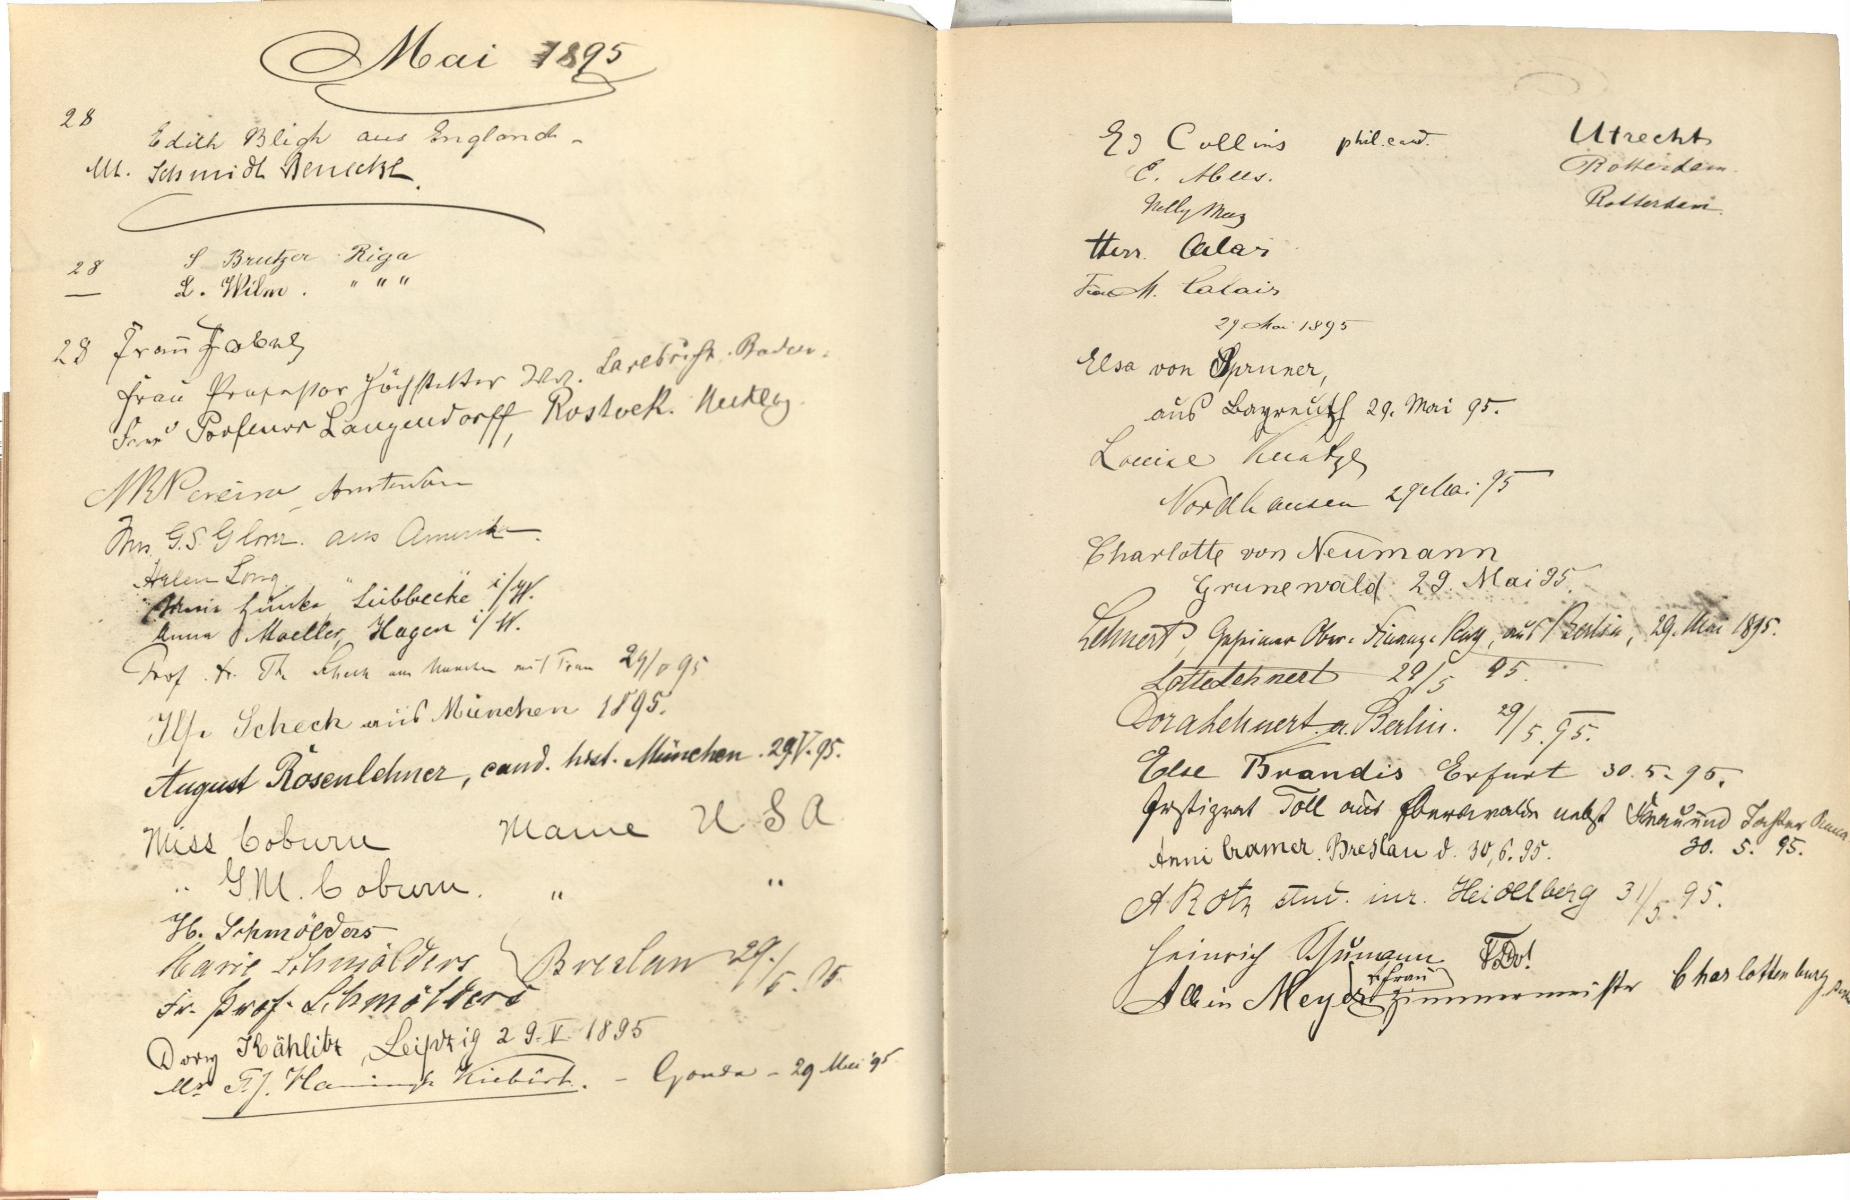 Mai 1895
28
Edith Bligh aus England -
M. Schmidt Beneckt.
28 S Brutzer Riga
L. Wilm. " " "
28 Frau
Frau Professor
Frau Professor Langendorff, Rostock.
Pereira, Amsterdam
Mrs. G.S. Glover. aus Amerika.
Helen Long. "
Lübbecke i/W.
Anna Moeller, Hagen i/W.
Prof. Dr. Th. Scheck aus München mit Frau 29/V 95
Scheck aus München 1895.
August Rosenlehner, cand. hist. München. 29.V.95.
Miss Coburn Maine U S A
" G.M. Coburn. " "
H. Schmölders
Marie Schmölders Breslau 29./5. 95.
Fr. Prof. Schmölders
Dory Kählitz, Leipzig 29.V.1895
- Gouda - 29 Mai '95
Ed Collins phil. cand. Utrecht
Rotterdam.
Nelly Rotterdam.
Herr Calais
Frau M. Calais
29 Mai 1895
Elsa von Spruner,
aus Bayreuth 29. Mai 95.
Louise
Nordhausen 29 Mai 95
Charlotte von Neumann
Grunewald 29. Mai 95.
Lehnert, Geheimer Ober-Finanz-Rath, aus Berlin, 29. Mai 1895.
Lotte Lehnert 29/5 95.
Dora Lehnert. a. Berlin. 29/5. 95.
Else Brandis Erfurt 30. 5. 95.
Toll aus Eberswalde nebst Frau und Tochter
Anni Cramer. Breslau d. 30,5.95. 30. 5. 95.
A Rotz stud. iur. Heidelberg 31/5. 95.
Heinrich
u. Frau
Meyer Zimmermeister Charlottenburg